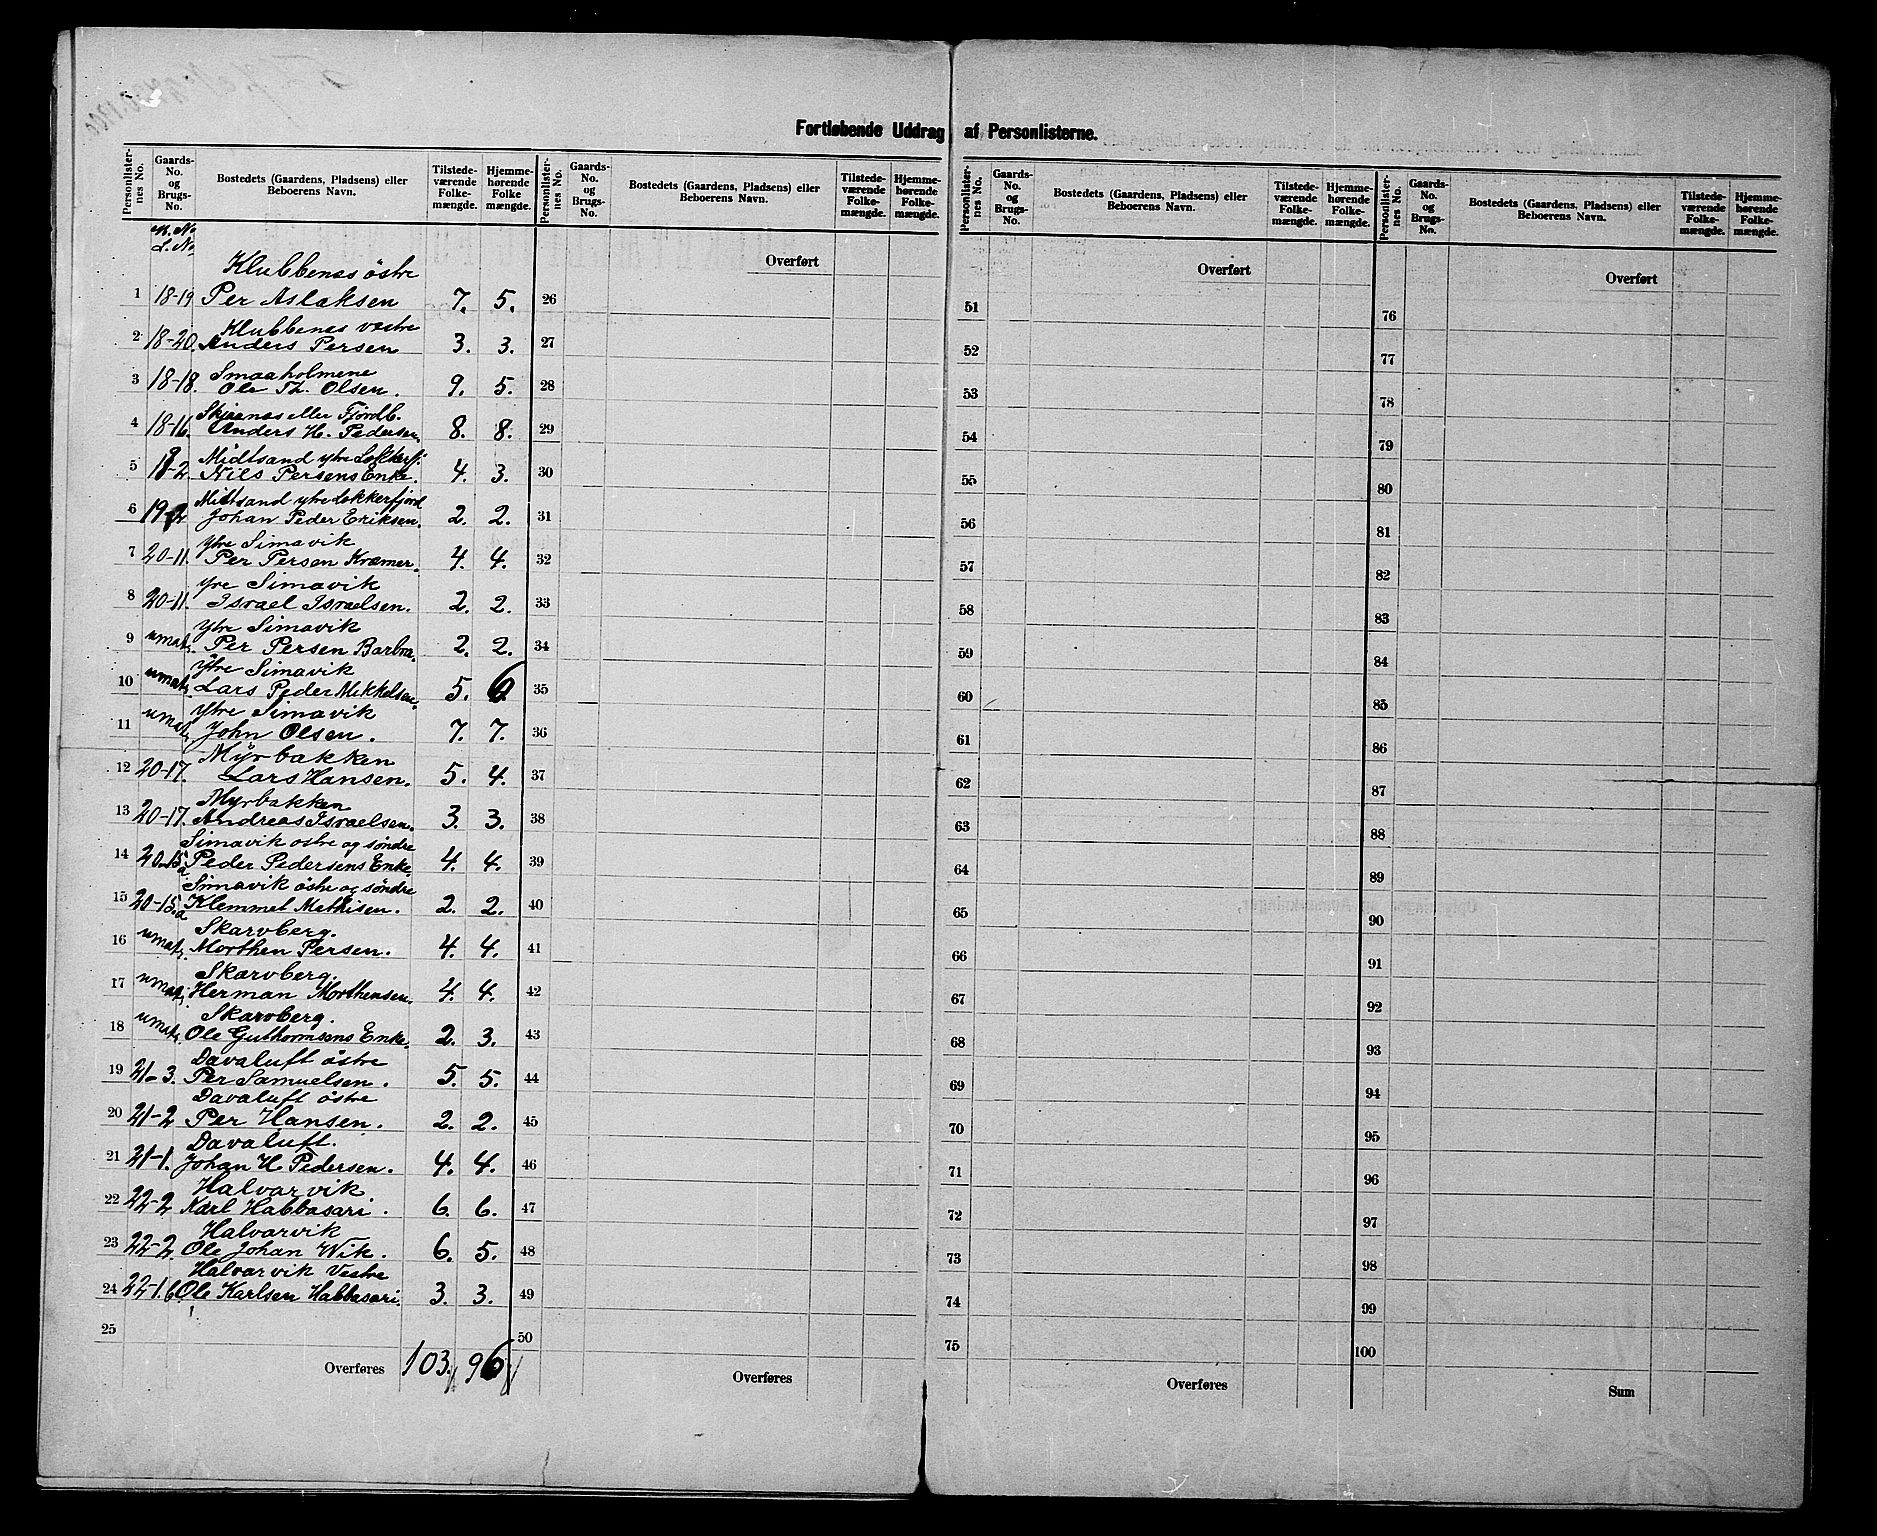 Fortløbende Uddrag af Personlisternе.
Personlister-nes No. Gaards-No. og Brugs-No. Bostedets (Gaardens, Pladsens) eller Beboerens Navn. Tilstede-værende Folke-mængde. Hjemme-hørende Folke mængde.
Personlister-nes No. Gaards-No. og Brugs-No. Bostedets (Gaardens, Pladsens) eller Beboerens Navn. Tilstede-værende Folke-mængde. Hjemme-hørende Folke-mængde.
Personlister-nes No. Gaards-No. og Brugs-No. Bostedets (Gaardens, Pladsens) eller Beboerens Navn. Tilstede-værende Folke-mængde. Hjemme-hørende Folke-mængde.
Personlister-nes No. Gaards-No. og Brugs-No. Bostedets (Gaardens, Pladsens) eller Beboerens Navn. Tilstede-værende Folke-mængde. Hjemme-hørende Folke-mængde.
M. No
L. No
Klubbenes östre
1 18-19 Per Aslaksen 7. 5.
Klubbenes vestre
2 18-20. Anders Persen 3. 3.
Smaaholmene
3 18-18. Ole Th. Olsen. 9. 5.
Skjaanes eller Fjordb.
4 18-16. Anders H. Pedersen. 8. 8.
Midtsand ytre Lokkerfj.
5 19-2 Nils Persens Enke. 4. 3.
Midtsand ytre Lokkerfjord
6 19-2 Johan Peder Eriksen. 2. 2.
Ytre Simavik
7 20-11. Per Persen Kræmer. 4. 4.
Yre Simavik
8 20-11. Israel Israelsen. 2. 2.
Ytre Simavik
9 umat. Per Persen Barbra. 2. 2.
Ytre Simavik
10 umat. Lars Peder Mikkelsen. 5. 6
Ytre Simavik
11 umat. John Olsen. 7. 7.
Myrbakken
12 20-17. Lars Hansen. 5. 4.
Myrbakken
13 20-17. Andreas Israelsen. 3. 3.
Simavik ostre og söndre
14 20-15a Peder Pedersens Enke. 4. 4.
Simavik östre og søndre
15 20-15.a Klemmet Mathisen. 2. 2.
Skarvberg.
16 umat. Morthen Persen. 4. 4.
Skarvberg.
17 umat. Herman Morthensen. 4. 4.
Skarvberg.
18 umat. Ole Guthormsens Enke. 2. 3.
Davaluft östre
19 21-3. Per Samuelsen. 5. 5.
Davaluft östre
20 21-2 Per Hansen. 2. 2.
Davaluft.
21 21-1. Johan H. Pedersen. 4. 4.
Halvarvik.
22 22-2 Karl Habbasari. 6. 6.
Halvarvik
23 22-2. Ole Johan Wik. 6. 5.
Halvarvik Vestre
24 22-1.6 Ole Karlsen Habbasari. 3. 3.
25
Overføres 103. 96
Overført
26
27
28
29
30
31
32
33
34
35
36
37
38
39
40
41
42
43
44
45
46
47
48
49
50
Overføres
Overført
51
52
53
54
55
56
57
58
59
60
61
62
63
64
65
66
67
68
69
70
71
72
73
74
75
Overføres
Overført
76
77
78
79
80
81
82
83
84
85
86
87
88
89
90
91
92
93
94
95
96
97
98
99
100
Sum